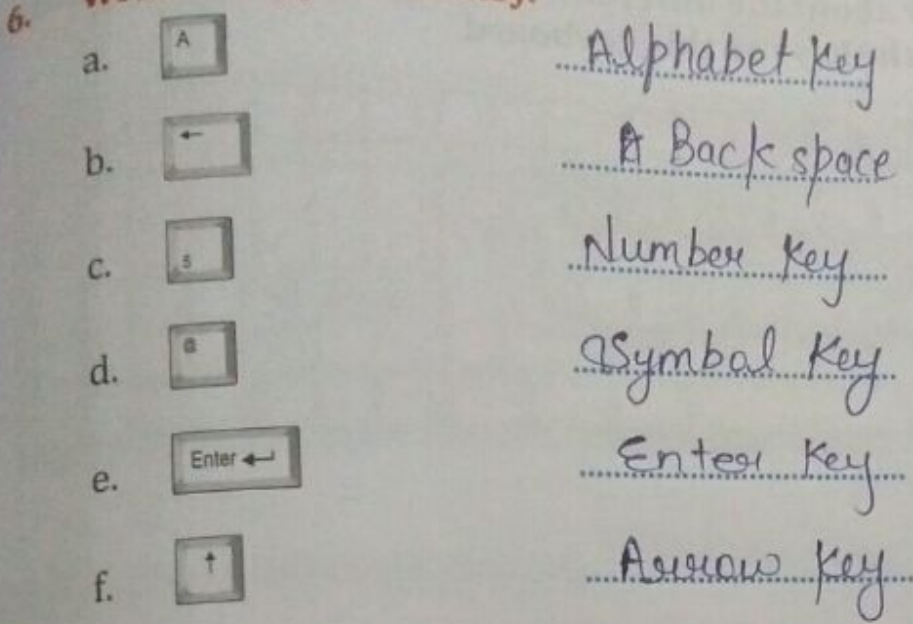 6.
a. A Alphabet key
b. ← Back space
c. 5 Number key
d. @ Symbal Key
e. Enter ↵ Enter Key
f. ↑ Arrow key